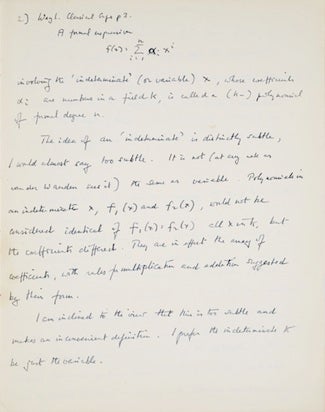 2) Weyl. Classical Groups p 2.
A formal expression
f(x) = Σ αᵢ xⁱ
involving the 'indeterminate' (or variable) x, whose coefficients
αᵢ are numbers in a field K, is called a (k-) polynomial
of formal degree n.
The idea of an 'indeterminate' is distinctly subtle,
I would almost say too subtle. It is not (at any rate as
van der Waerden uses it) the same as variable. Polynomials in
an indeterminate x, f₁(x) and f₂(x), would not be
considered identical if f₁(x) = f₂(x) all x in K, but
the coefficients different. They are in effect the array of
coefficients, with rules for multiplication and addition suggested
by their form.
I am inclined to the view that this is too subtle and
makes an inconvenient definition. I prefer the indeterminate to
be just the variable.